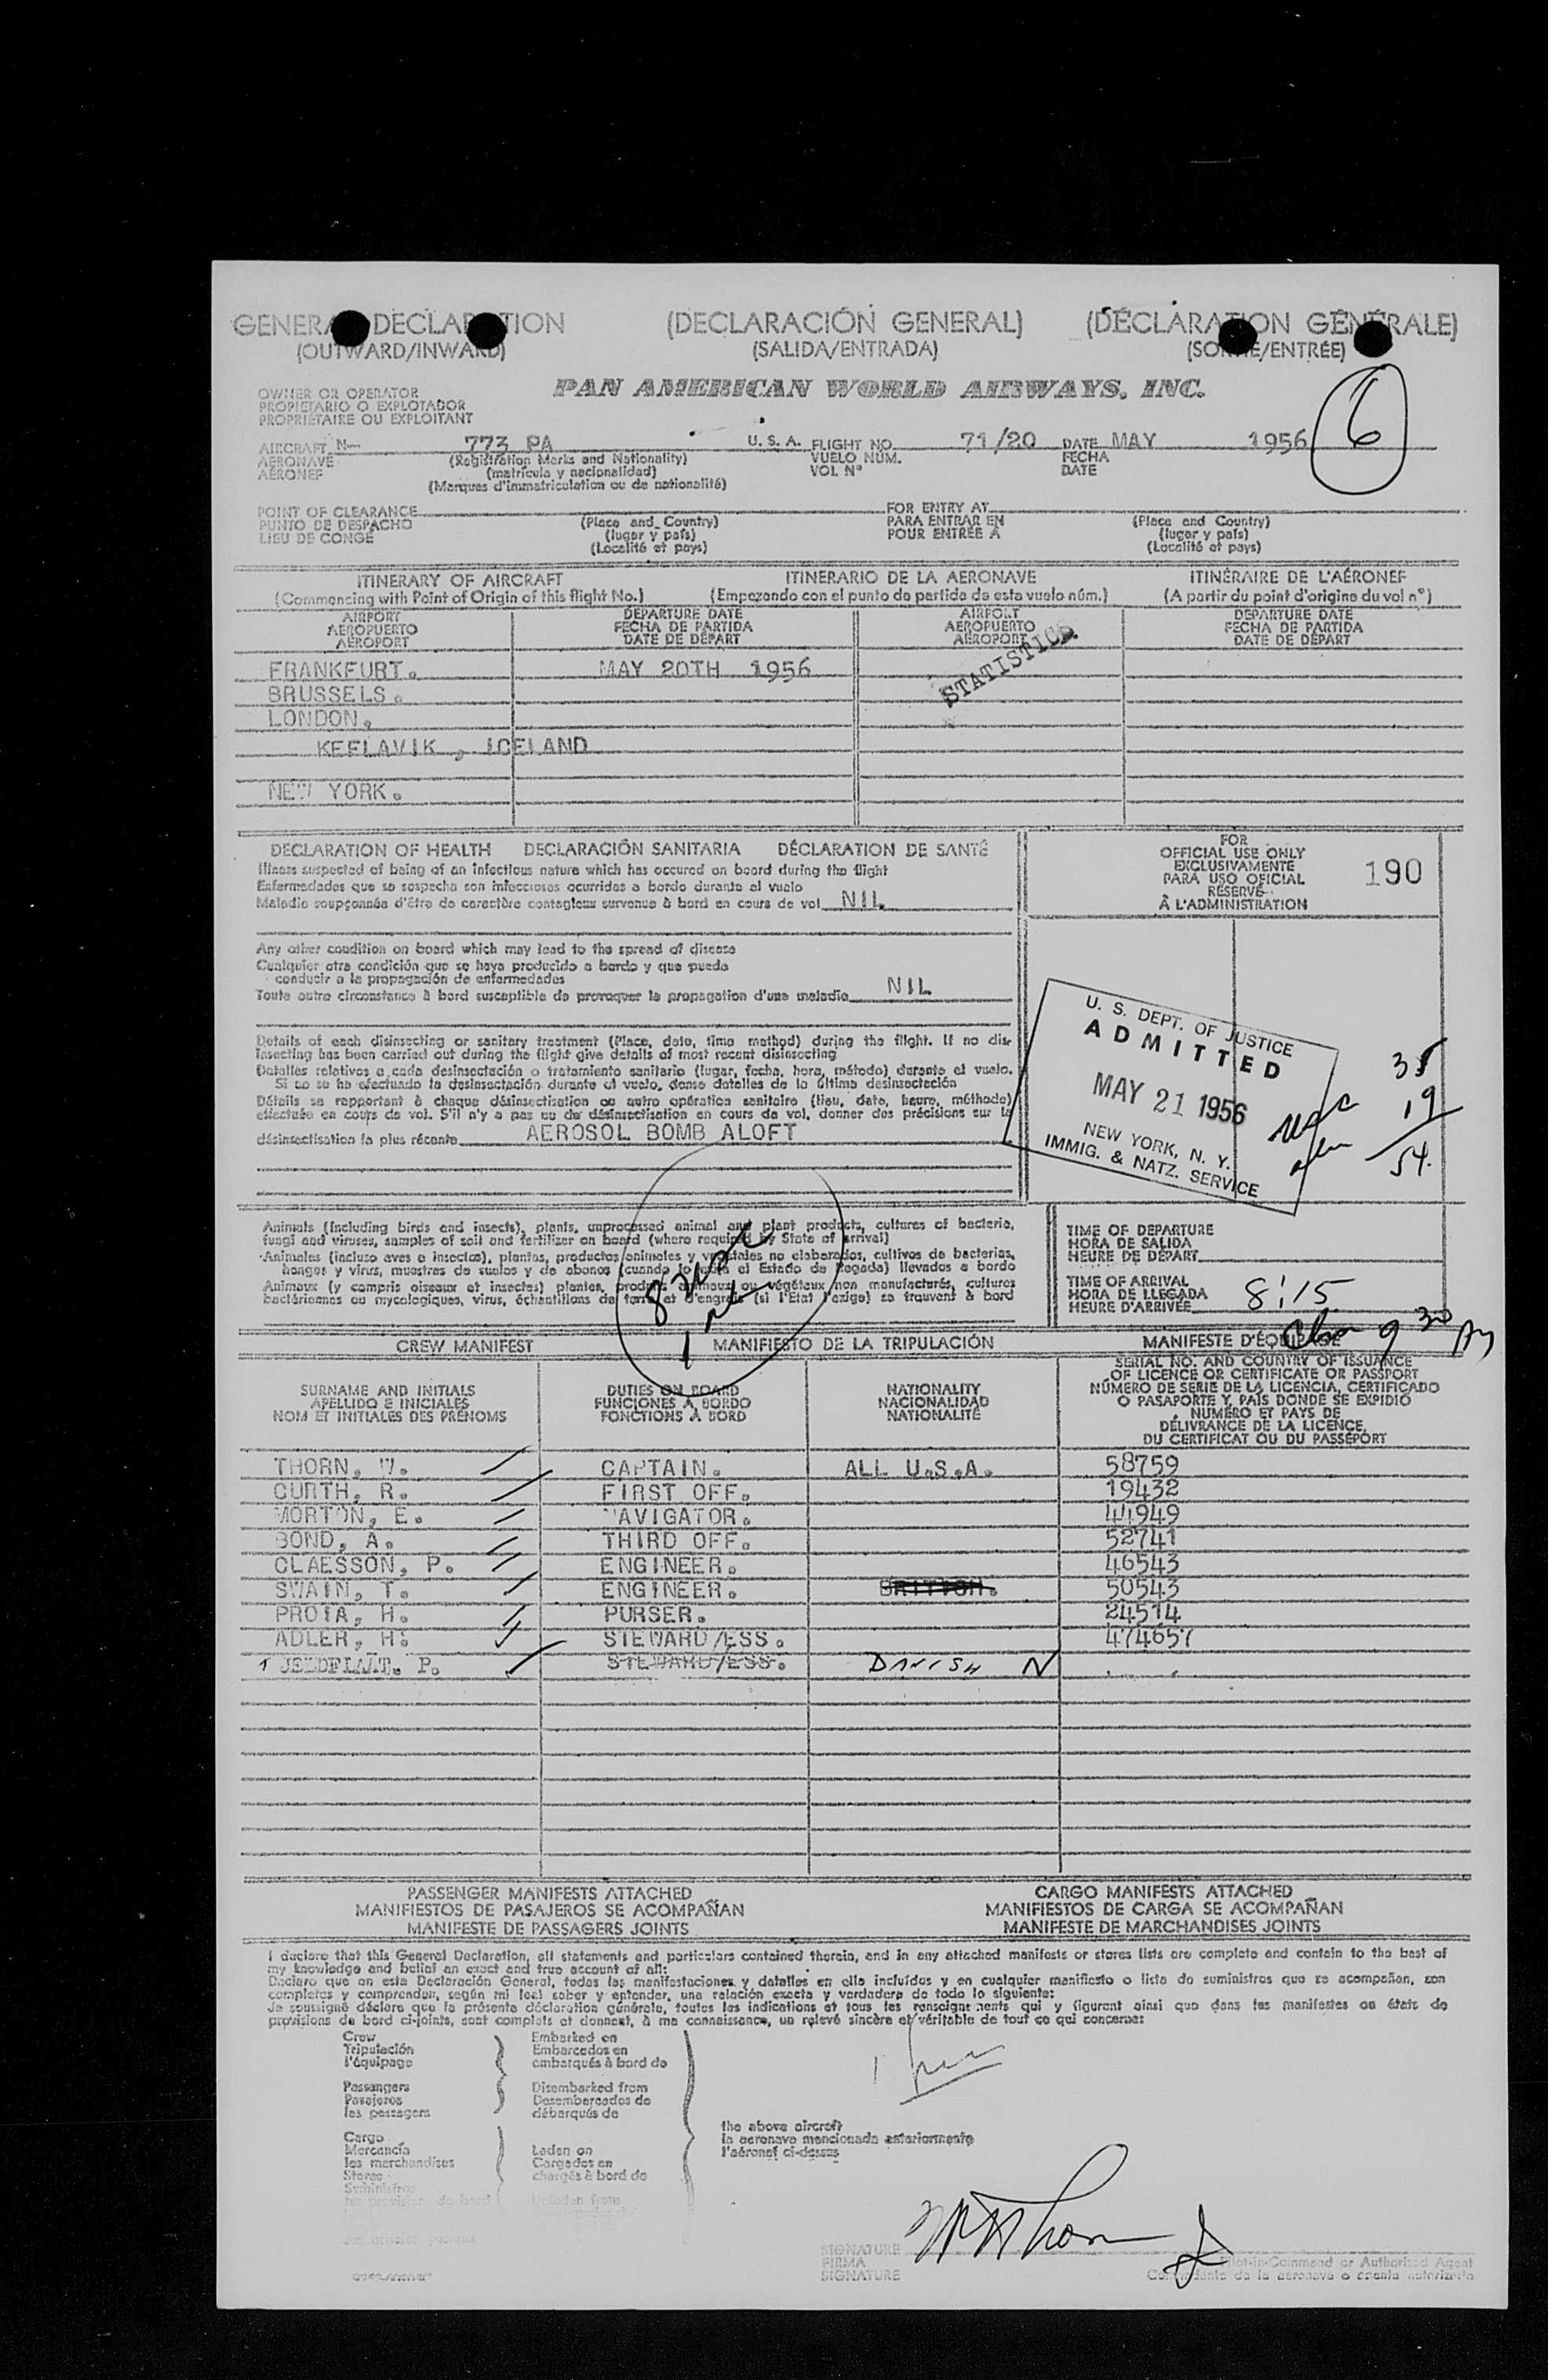 GENERAL DECLARATION (DECLARACIÓN GENERAL) (DÉCLARATION GÉNÉRALE)
(OUTWARD/INWARD) (SALIDA/ENTRADA) (SORTIE/ENTRÉE)
OWNER OR OPERATOR PAN AMERICAN WORLD AIRWAYS, INC.
PROPIETARIO O EXPLOTADOR
PROPRIÉTAIRE OU EXPLOITANT
6
AIRCRAFT N— 773 PA U. S. A. FLIGHT NO. 71/20 DATE MAY 1956
AERONAVE (Registration Marks and Nationality) VUELO NÚM. FECHA
AÉRONEF (matrícula y nacionalidad) VOL Nº DATE
(Marques d'immatriculation ou de nationalité)
POINT OF CLEARANCE FOR ENTRY AT
PUNTO DE DESPACHO (Place and Country) PARA ENTRAR EN (Place and Country)
LIEU DE CONGÉ (lugar y país) POUR ENTRÉE À (lugar y país)
(Localité et pays) (Localité et pays)
ITINERARY OF AIRCRAFT ITINERARIO DE LA AERONAVE ITINÉRAIRE DE L'AÉRONEF
(Commencing with Point of Origin of this flight No.) (Empezando con el punto de partida de esta vuelo núm.) (A partir du point d'origine du vol nº)
AIRPORT DEPARTURE DATE AIRPORT DEPARTURE DATE
AEROPUERTO FECHA DE PARTIDA AEROPUERTO FECHA DE PARTIDA
AÉROPORT DATE DE DÉPART AÉROPORT DATE DE DÉPART
STATISTICS
FRANKFURT. MAY 20TH 1956
BRUSSELS.
LONDON.
KEFLAVIK , ICELAND
NEW YORK.
DECLARATION OF HEALTH DECLARACIÓN SANITARIA DÉCLARATION DE SANTÉ
Illness suspected of being of an infectious nature which has occured on board during the flight
Enfermedades que se sospecha son infecciosas ocurridas a bordo durante el vuelo
Maladie soupçonnée d'être de caractère contagieux survenue à bord en cours de vol NIL
FOR
OFFICIAL USE ONLY
EXCLUSIVAMENTE
PARA USO OFICIAL
RÉSERVÉ
À L'ADMINISTRATION
190
Any other condition on board which may lead to the spread of disease
Cualquier otra condición que se haya producido a bordo y que pueda
conducir a la propagación de enfermedades
Toute autre circonstance à bord susceptible de provoquer la propagation d'une maladie NIL
Details of each disinsecting or sanitary treatment (Place, date, time method) during the flight. If no dis-
insecting has been carried out during the flight give details of most recent disinsecting
Detalles relativos a cada desinsectación o tratamiento sanitario (lugar, fecha, hora, método) durante el vuelo.
Si no se ha efectuado la desinsectación durante el vuelo, dense detalles de la última desinsectación
Détails se rapportant à chaque désinsectisation ou autre opération sanitaire (lieu, date, heure, méthode)
effectuée en cours de vol. S'il n'y a pas eu de désinsectisation en cours de vol, donner des précisions sur la
désinsectisation la plus récente AEROSOL BOMB ALOFT
U. S. DEPT. OF JUSTICE
ADMITTED
MAY 21 1956
NEW YORK, N. Y.
IMMIG. & NATZ. SERVICE
35
19
54.
Animals (including birds and insects), plants, unprocessed animal and plant products, cultures of bacteria,
fungi and viruses, samples of soil and fertilizer on board (where required by State of arrival)
Animales (incluso aves e insectos), plantas, productos animales y vegetales no elaborados, cultivos de bacterias,
hongos y virus, muestras de suelos y de abonos (cuando lo exija el Estado de llegada) llevados a bordo
Animaux (y compris oiseaux et insectes) plantes, produits animaux ou végétaux non manufacturés, cultures
bactériennes ou mycologiques, virus, échantillons de terre et d'engrais (si l'Etat l'exige) se trouvent à bord
TIME OF DEPARTURE
HORA DE SALIDA
HEURE DE DÉPART
TIME OF ARRIVAL
HORA DE LLEGADA 8:15
HEURE D'ARRIVÉE
9 30
CREW MANIFEST MANIFIESTO DE LA TRIPULACIÓN MANIFESTE D'ÉQUIPAGE
SURNAME AND INITIALS
APELLIDO E INICIALES
NOM ET INITIALES DES PRÉNOMS
DUTIES ON BOARD
FUNCIONES A BORDO
FONCTIONS À BORD
NATIONALITY
NACIONALIDAD
NATIONALITÉ
SERIAL NO. AND COUNTRY OF ISSUANCE
OF LICENCE OR CERTIFICATE OR PASSPORT
NÚMERO DE SERIE DE LA LICENCIA, CERTIFICADO
O PASAPORTE Y PAÍS DONDE SE EXPIDIÓ
NUMÉRO ET PAYS DE
DÉLIVRANCE DE LA LICENCE,
DU CERTIFICAT OU DU PASSEPORT
THORN, W. CAPTAIN. ALL U.S.A. 58759
CURTH, R. FIRST OFF. 19432
MORTON, E. NAVIGATOR. 44949
BOND, A. THIRD OFF. 52741
CLAESSON, P. ENGINEER. 46543
SWAIN, T. ENGINEER. BRITISH. 50543
PROIA, H. PURSER. 24514
ADLER, H. STEWARD/ESS. 474657
P. STEWARD/ESS. DANISH N
PASSENGER MANIFESTS ATTACHED CARGO MANIFESTS ATTACHED
MANIFIESTOS DE PASAJEROS SE ACOMPAÑAN MANIFIESTOS DE CARGA SE ACOMPAÑAN
MANIFESTE DE PASSAGERS JOINTS MANIFESTE DE MARCHANDISES JOINTS
I declare that this General Declaration, all statements and particulars contained therein, and in any attached manifests or stores lists are complete and contain to the best of
my knowledge and belief an exact and true account of all:
Declaro que en esta Declaración General, todas las manifestaciones y detalles en ella incluídos y en cualquier manifiesto o lista de suministros que se acompañan, son
completos y comprenden, según mi leal saber y entender, una relación exacta y verdadera de todo lo siguiente:
Je soussigné déclare que la présente déclaration générale, toutes les indications et tous les renseignements qui y figurent ainsi que dans les manifestes ou états de
provisions de bord ci-joints, sont complets et donnent, à ma connaissance, un relevé sincère et véritable de tout ce qui concerne:
Crew Embarked on
Tripulación Embarcados en
l'équipage embarqués à bord de
Passengers Disembarked from
Pasajeros Desembarcados de
les passagers débarqués de
the above aircraft
la aeronave mencionada anteriormente
l'aéronef ci-dessus
Cargo
Mercancía Laden on
les marchandises Cargados en
Stores chargés à bord de
Suministros
les provisions de bord Unladen from
SIGNATURE
FIRMA Pilot-in-Command or Authorised Agent
SIGNATURE Comandante de la aeronave o agente autorizado